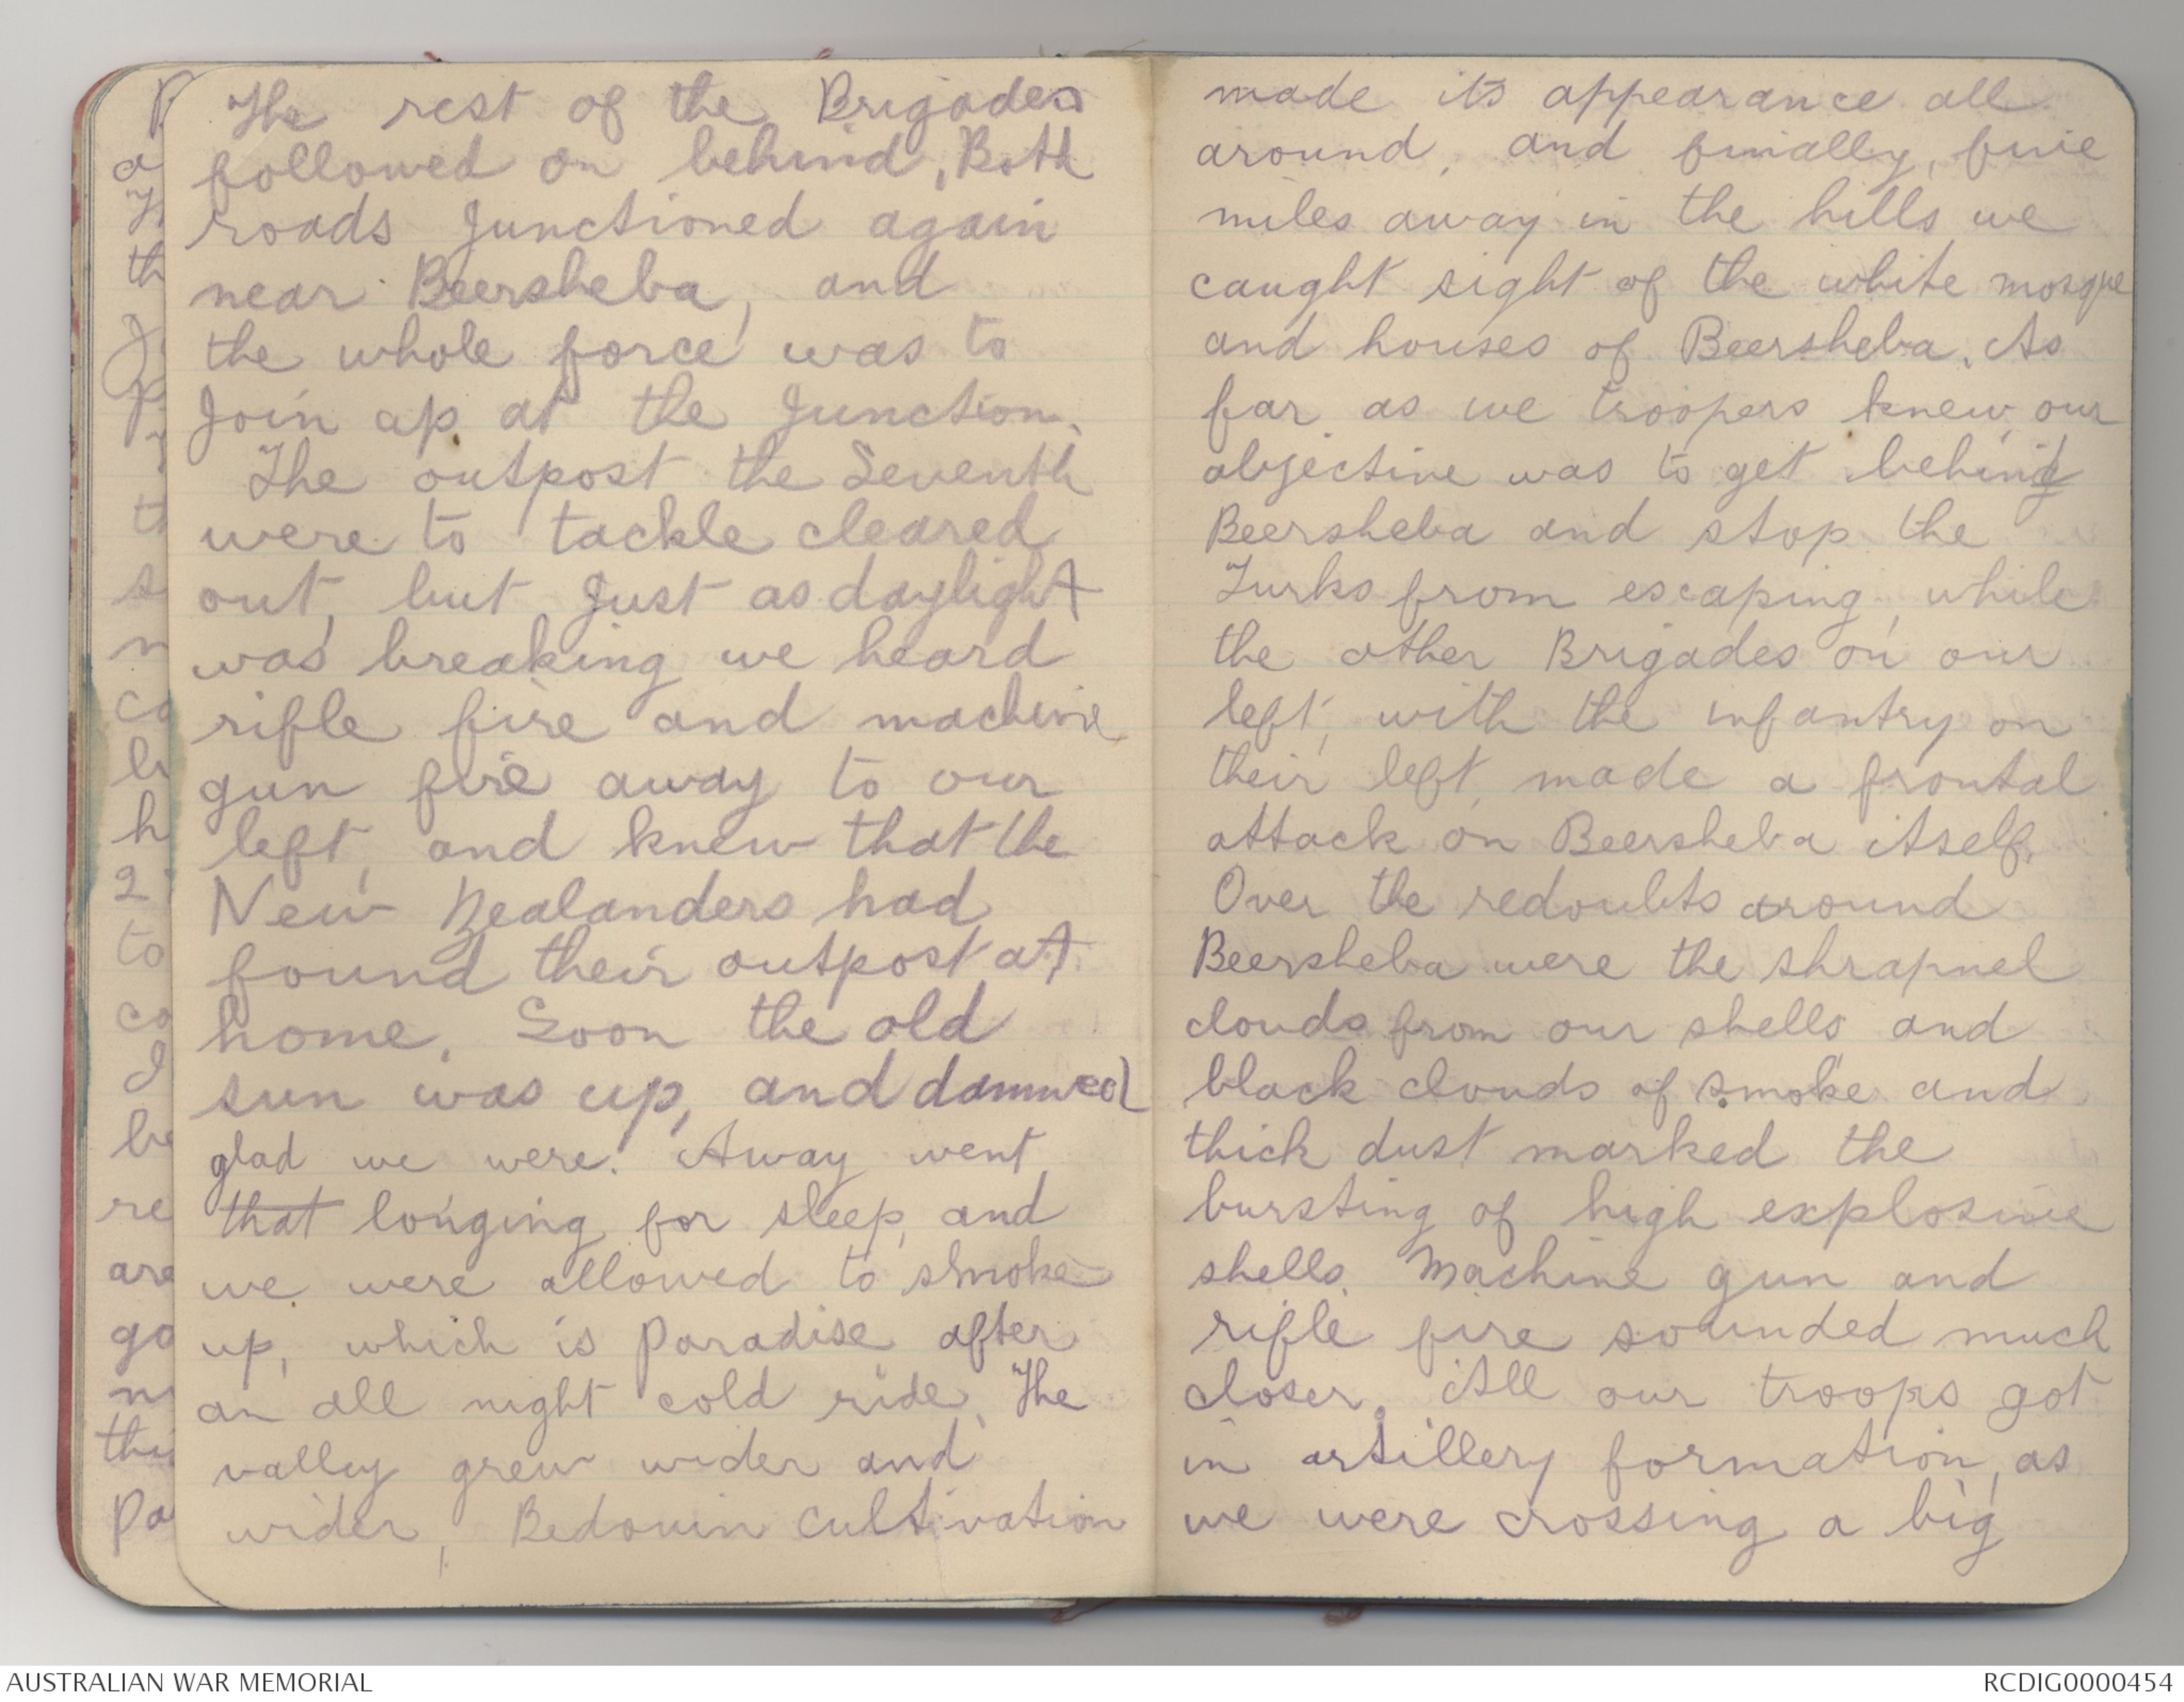 The rest of the Brigades
followed on behind, Both
roads Junctioned again
near Beersheba, and
the whole force was to
Join up at the Junction.
The outpost the Seventh
were to tackle cleared
out, but Just as daylight
was breaking we heard
rifle fire and machine
gun fire away to our
left, and knew that the
New Zealanders had
found their outpost at
home. Soon the old
sun was up, and damned
glad we were. Away went
that longing for sleep, and
we were allowed to smoke
up, which is Paradise after
an all night cold ride. The
valley grew wider and
wider, Bedouin cultivation
made its appearance all
around, and finially, five
miles away in the hills we
caught sight of the white mosque
and houses of Beersheba. As
far as we troopers knew, our
objective was to get behind
Beersheba and stop the
Turks from escaping, while
the other Brigades on our
left, with the infantry on
their left, made a frontal
attack on Beersheba itself.
Over the redoubts around
Beersheba were the shrapnel
clouds from our shells and
black clouds of smoke and
thick dust marked the
bursting of high explosive
shells. Machine gun and
rifle fire sounded much
closer. All our troops got
in artillery formation, as
we were crossing a big
AUSTRALIAN WAR MEMORIAL
RCDIG0000454